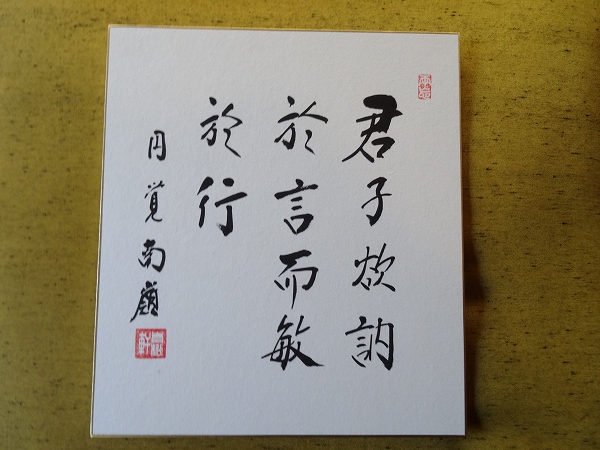 君子欲訥
於言而敏
於行
円覚南嶺